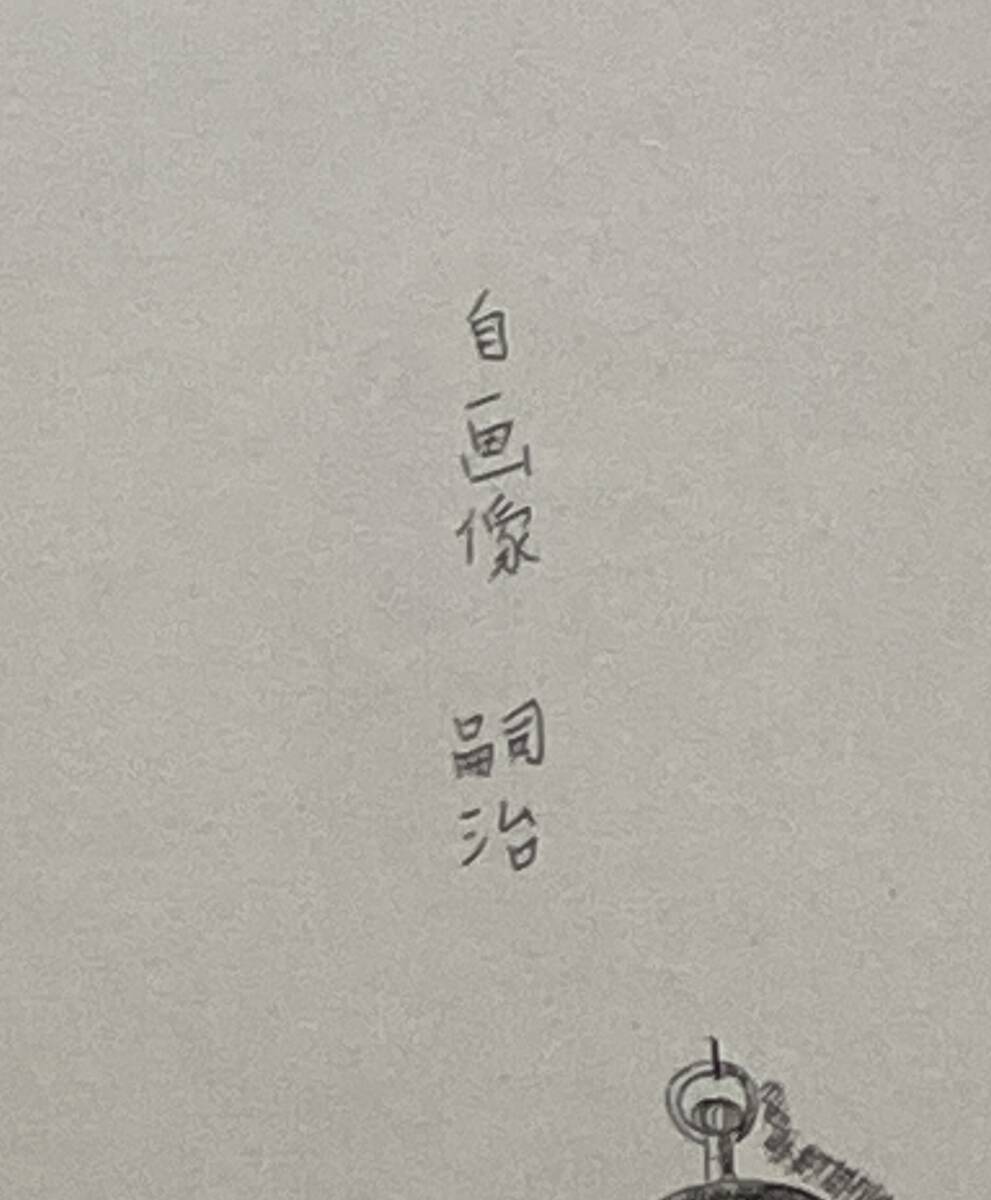 自画像 嗣治